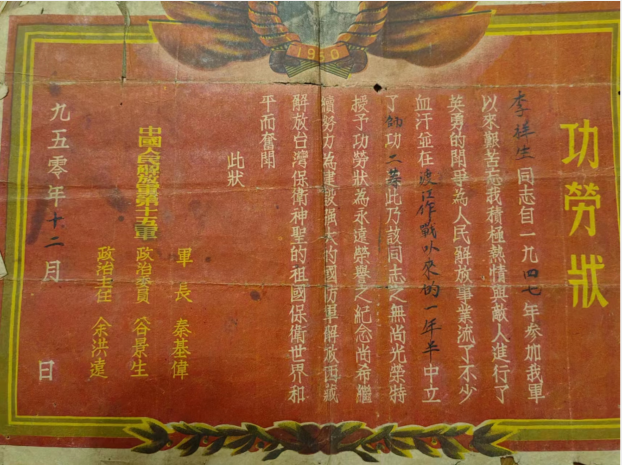 1950
功勞狀
李祥生同志自一九四七年参加我軍
以來艱苦忘我積極熱情與敵人進行了
英勇的鬥爭為人民解放事業流了不少
血汗並在渡江作戰以來的一年半中立
了師功二等此乃該同志之無尚光榮特
授予功勞狀為永遠榮譽之紀念尚希繼
續努力為建設强大的國防軍解放西藏
解放台灣保衛神聖的祖國保衛世界和
平而奮鬥
此狀
軍長 秦基偉
政治委員 谷景生
政治主任 余洪遠
中國人民解放軍第十五軍
九五零年十二月 日